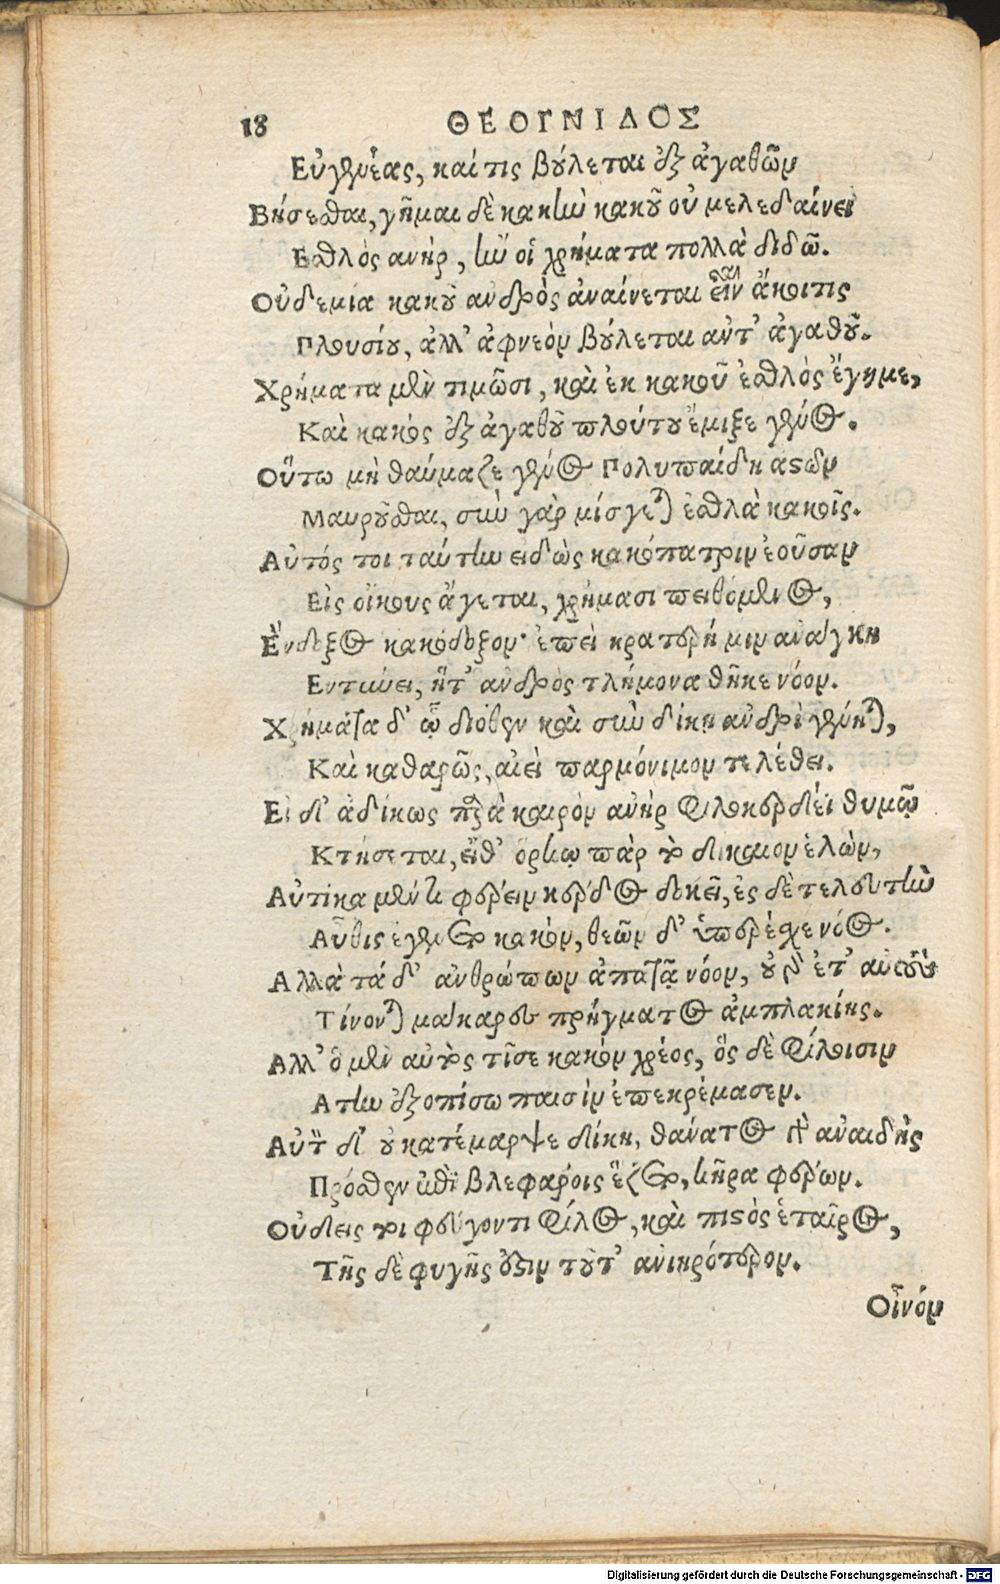 18 ΘΕΟΓΝΙΔΟΣ
Εὐγενέας, καί τις βούλεται ἐξ ἀγαθῶν
Βήσεσθαι, γῆμαι δὲ κακὴν κακοῦ οὐ μελεδαίνει
Εσθλὸς ανὴρ, ἢν οἱ χρήματα πολλὰ διδῶ.
Οὐδεμία κακοῦ ανδρὸς ἀναίνεται εἶναι ἄκοιτις
Πλουσίου, ἀλλ' ἀφνεὸν βούλεται αντ' ἀγαθοῦ.
Χρήματα μὲν τιμῶσι, καὶ ἐκ κακοῦ ἐσθλὸς ἔγημε,
Καὶ κακός ἐξ ἀγαθοῦ πλούτου ἔμιξε γένος.
Οὕτω μὴ θαύμαζε γένος Πολυπαίδη αστῶν
Μαυροῦσθαι, σὺν γὰρ μίσγεται ἐσθλὰ κακοῖς.
Αὐτός τοι ταύτην ειδὼς κακόπατριν ἐοῦσαν
Εἰς οἴκους ἄγεται, χρήμασι πειθόμενος,
Ένδοξος κακόδοξον· ἐπεὶ κρατερή μιν αναίγκη
Εντύνει, ἥτ' ανδρὸς τλήμονα θῆκε νόον.
Χρήματα δ' ᾧ διόθεν καὶ σὺν δίκῃ ανδρὶ γένηται,
Καὶ καθαρῶς, αἰεὶ παρμόνιμον τελέθει.
Ει δ' ἀδίκως παρὰ καιρὸν ανὴρ φιλοκερδέϊ θυμῷ
Κτήσεται, εἴθ' ὅρκῳ πὰρ τὸ δίκαιον ἑλὼν,
Αὐτίκα μέν τι φέρειν κέρδος δοκεῖ, ἐς δὲ τελευτὴν
Αὖθις ἐγένετο κακὸν, θεῶν δ' ὑπερέσχε νόος.
Αλλὰ τά δ' ἀνθρώπων ἀπατᾷ νόον, οὐ γὰρ ἔτ' αυτοὺς
Τίνονται μαίκαρες πρήγματος ἀμπλακίης.
Αλλ' ὁ μὲν αυτὸς τῖσε κακὸν χρέος, ὃς δὲ φίλοισιν
Ατην ἐξοπίσω παισὶν ἐπεκρέμασεν.
Αὐτὸν δ' οὐ κατέμαρψε δίκη, θάνατος γὰρ αναιδὴς
Πρόσθεν ἐπὶ βλεφαρόις ἕζετο, κῆρα φέρων.
Οὐδεις τοι φεύγοντι φίλος, καὶ πιστὸς ἑταῖρος,
Τῆς δὲ φυγῆς ἐστιν τοῦτ' ανιηρότερον.
Οἶνόν
Digitalisierung gefördert durch die Deutsche Forschungsgemeinschaft - DFG